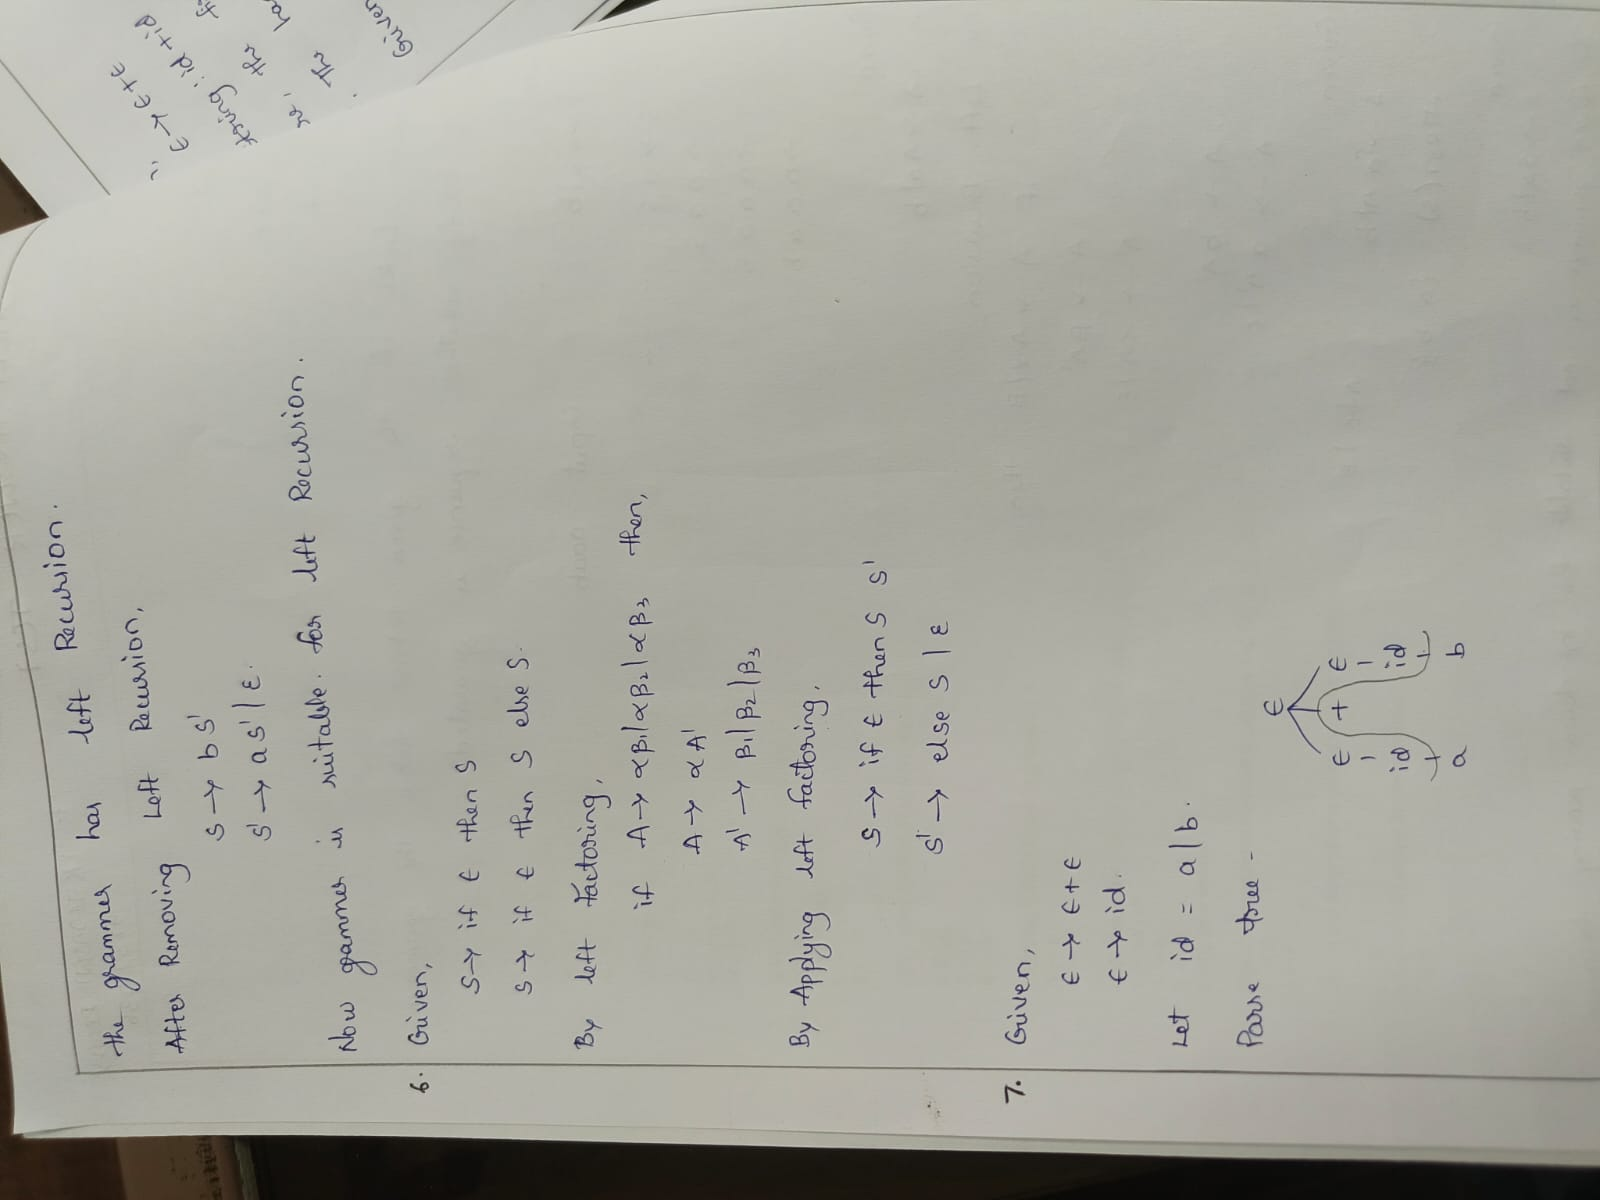 the grammer has left Recursion.
After Removing Left Recursion,
S → b S'
S' → a S' | ε.
Now grammer is suitable. for left Recursion.
6. Given,
S → if E then S
S → if E then S else S.
By left factoring,
if A → αβ1 | αβ2 | αβ3 then,
A → αA'
A' → β1 | β2 | β3
By Applying left factoring,
S → if E then S S'
S' → else S | ε
7. Given,
E → E + E
E → id.
Let id = a | b.
Parse tree -
E
E + E
id id
a b
E → E + E
string : id + id
the
re, the
Given